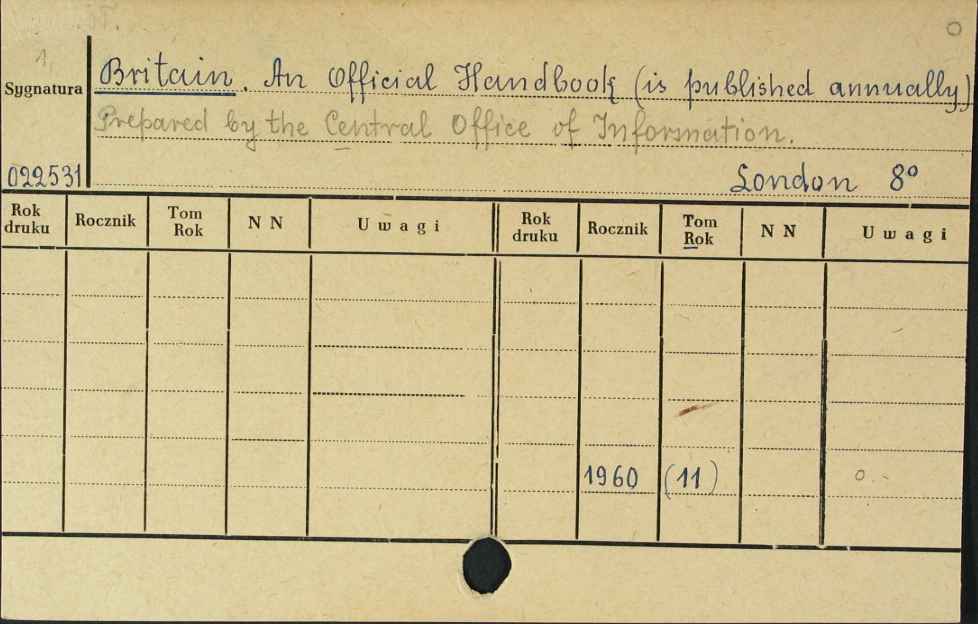 1.
Sygnatura
Britain. An Official Handbook (is published annually)
Prepared by the Central Office of Information.
022531
London 8º
Rok druku Rocznik Tom Rok N N Uwagi Rok druku Rocznik Tom Rok N N Uwagi
1960 (11) o.-